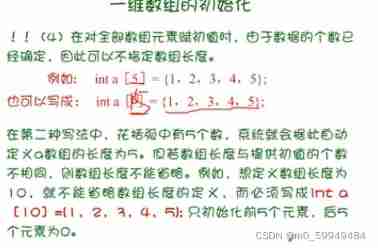 一维数组的初始化
！！（4）在对全部数组元素赋初值时，由于数据的个数已
经确定，因此可以不指定数组长度。
例如： int a［5］={1，2，3，4，5};
也可以写成： int a［ ］={1，2，3，4，5};
在第二种写法中，花括弧中有5个数，系统就会据此自动
定义a数组的长度为5。但若数组长度与提供初值的个数
不相同，则数组长度不能省略。例如，想定义数组长度为
10，就不能省略数组长度的定义，而必须写成int a
［10］={1，2，3，4，5}; 只初始化前5个元素，后5
个元素为0。
CSDN @m0_59949484